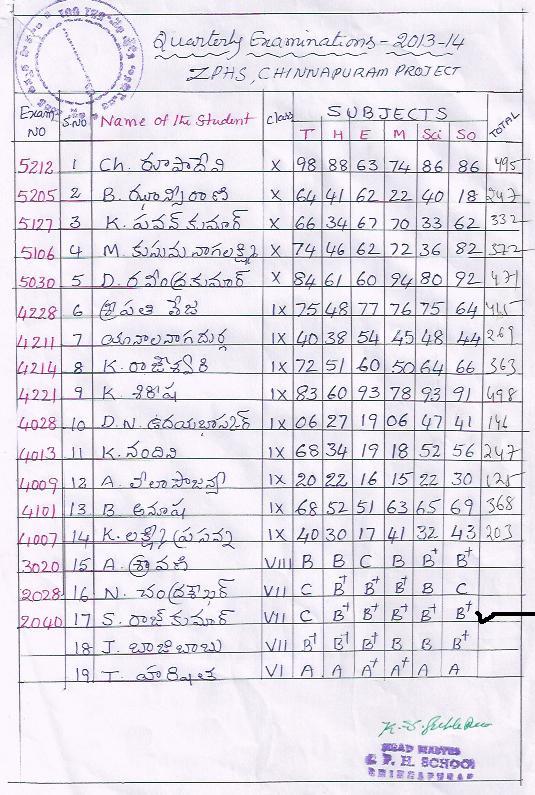 Quarterly Examinations - 2013-14
ZPHS, CHINNAPURAM PROJECT
Exam NO S.NO Name of the Student class SUBJECTS TOTAL
T H E M Sci So
5212 1 Ch. రూపాదేవి X 98 88 63 74 86 86 495
5205 2 B. ఝాన్సీరాణి X 64 41 62 22 40 18 247
5127 3 K. పవన్ కుమార్ X 66 34 67 70 33 62 332
5106 4 M. కుసుమ నాగలక్ష్మి X 74 46 62 72 36 82
5030 5 D. రవీంద్రకుమార్ X 84 61 60 94 80 92 471
4228 6 శ్రీపతి తేజ IX 75 48 77 76 75 64
4211 7 యనాలనాగదుర్గ IX 40 38 54 45 48 44 269
4214 8 K. రాజేశ్వరి IX 72 51 60 50 64 66 363
4221 9 K. శిరీష IX 83 60 93 78 93 91 498
4028 10 D.N. ఉదయభాస్కర్ IX 06 27 19 06 47 41 146
4013 11 K. నందిని IX 68 34 19 18 52 56 247
4009 12 A. లీలాసౌజన్య IX 20 22 16 15 22 30 125
4101 13 B. అనూష IX 68 52 51 63 65 69 368
4007 14 K. లక్ష్మీ ప్రసన్న IX 40 30 17 41 32 43 203
3020 15 A. శ్రావణి VIII B B C B B+ B+
2028 16 N. చంద్రశేఖర్ VII C B+ B+ B+ B C
2040 17 S. రాజ్ కుమార్ VII C B+ B+ B+ B+ B+
18 J. బాజిబాబు VII B+ B+ B+ B B B+
19 T. హారిషిత VI A A A+ A+ A A
HEAD MASTER
Z. P. H. SCHOOL
CHINNAPURAM